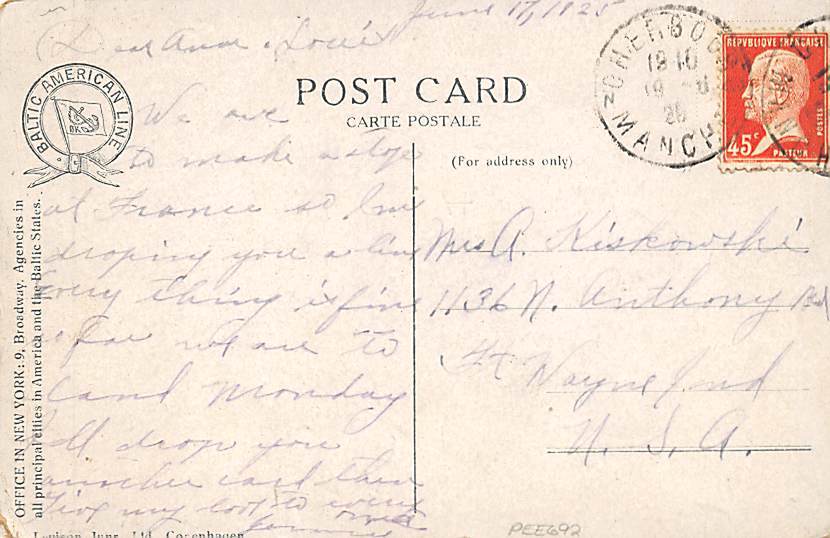 June 17, 1925
Dear Anna & Louie
We are
to make a stop
at France so I'm
droping you a line
Every thing is fine
so far we are to
land Monday
I'll drop you
another card then
Give my love to every
one
POST CARD
CARTE POSTALE
(For address only)
BALTIC AMERICAN LINE
OFFICE IN NEW YORK: 9, Broadway. Agencies in
all principal cities in America and the Baltic States.
CHERBOURG
18 10
19 - 6
MANCHE
REPVBLIQVE FRANÇAISE
45c
POSTES
PASTEUR
Mrs A. Kiskowski
1136 N. Anthony Bd
Ft Wayne Ind
U. S. A.
Levison Junr. Ltd. Copenhagen
PEE692